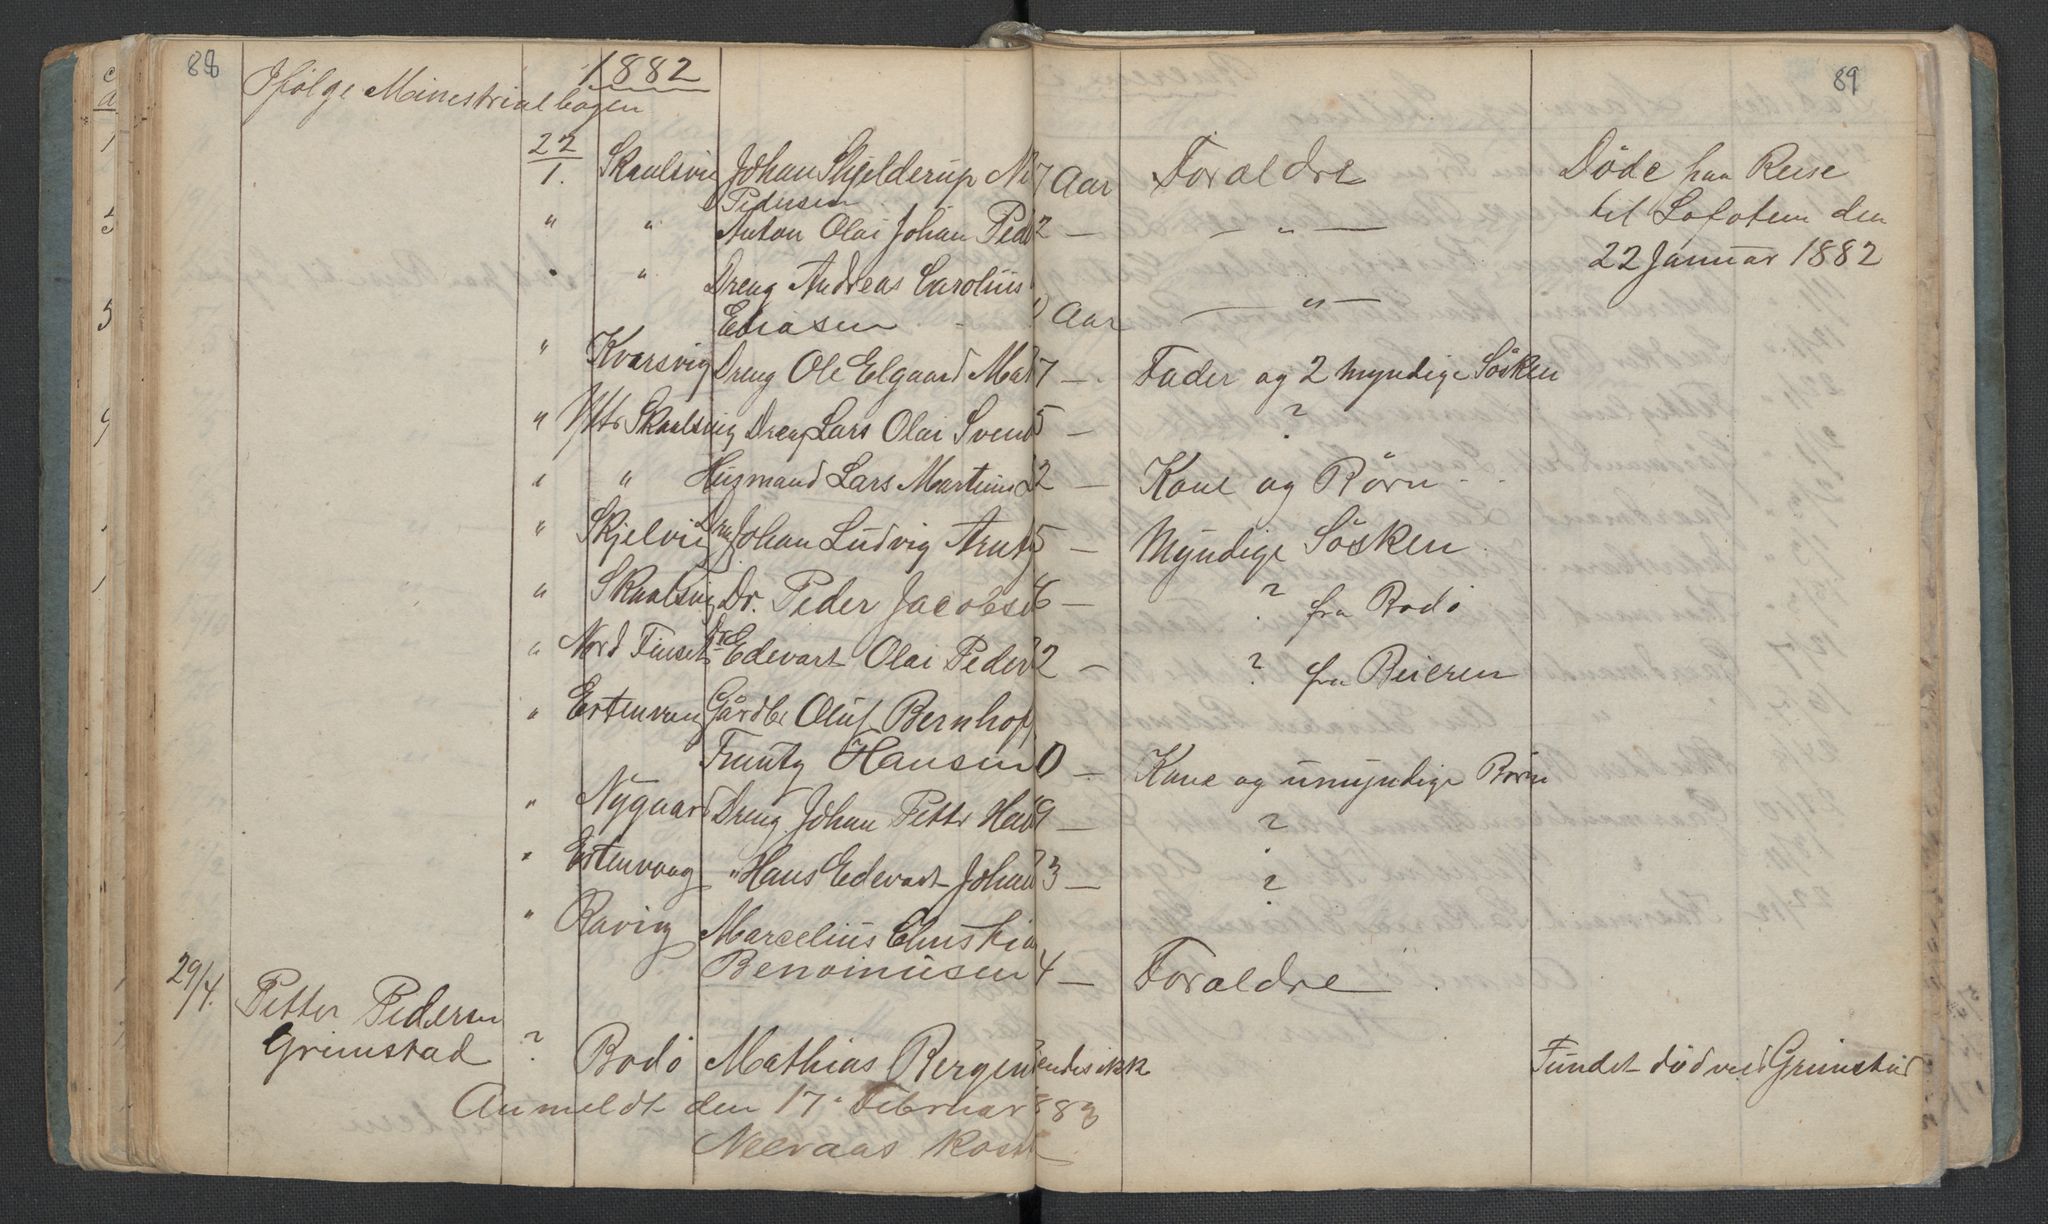 88
89
1882
Ifølge Ministrialbogen
22/1. Skaalsvig Johan Skjelderup 7 Aar Foraeldre Døde paa Reise
Pedersen
" " Anton Olai Johan Peder 2 — — " — til Lofoten den
22 Januar 1882
" " Dreng Andreas Carolius
Eliasen Aar — " —
" Kvarsvig Dreng Ole Elgaard Mat 7 — Fader og 2 myndige Søsken
" Yttr Skaalsvig Dreng Lars Olai Svend 5 — ?
" " Husmand Lars Martinus 2 — Kone og Børn
" Skjelvig Johan Ludvig Arntz 5 — Myndige Søsken
" Skaalsvig Dr. Peder Jacobsen 6 — ? fra Bodø
" Nord Finset Dr Edevart Olai Peder 2 — ? fra Beieren
" Estenvaag Gårdbr Oluf Bernhof
Frantz Hansen 0 — Kone og umyndige Børn
" Nygaard Dreng Johan Petter 9 — ?
" Estenvaag " Hans Edevart Johan 3 — ?
" Ravig Marcelius Christian
Benoniusen 4 — Foraeldre
29/4. Petter Pedersen
Grimstad ? Bodø Mathias Bergen endes ikk Fundet død ved Grimstad
Anmeldt den 17. Februar 883